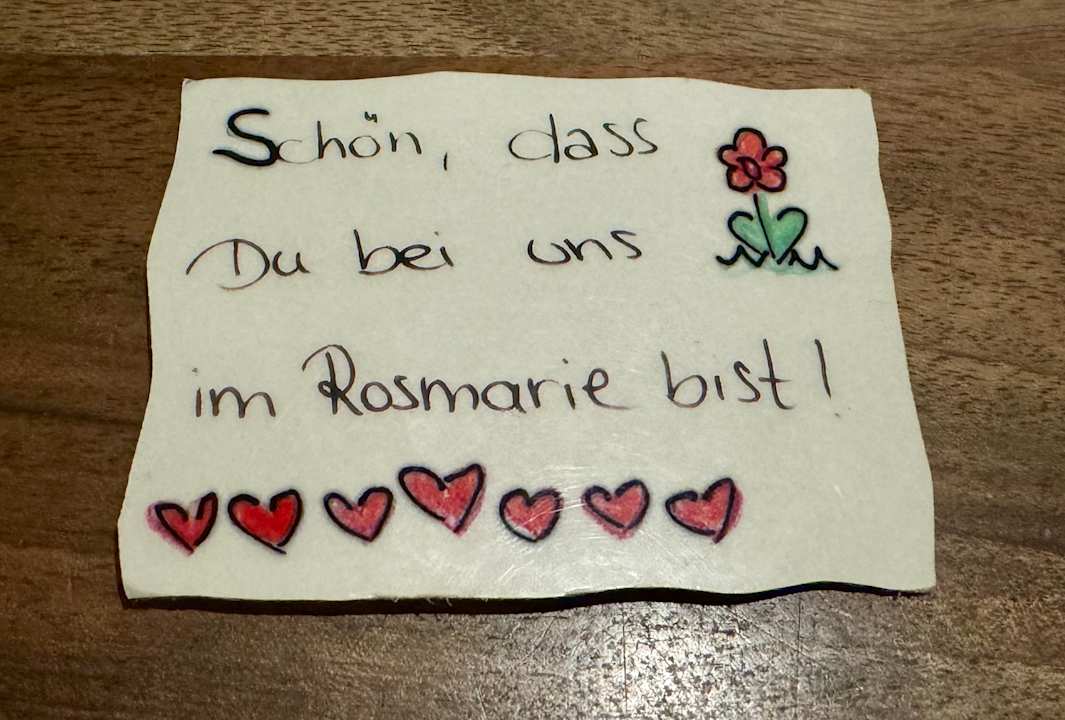 Schön, dass
Du bei uns
im Rosmarie bist!